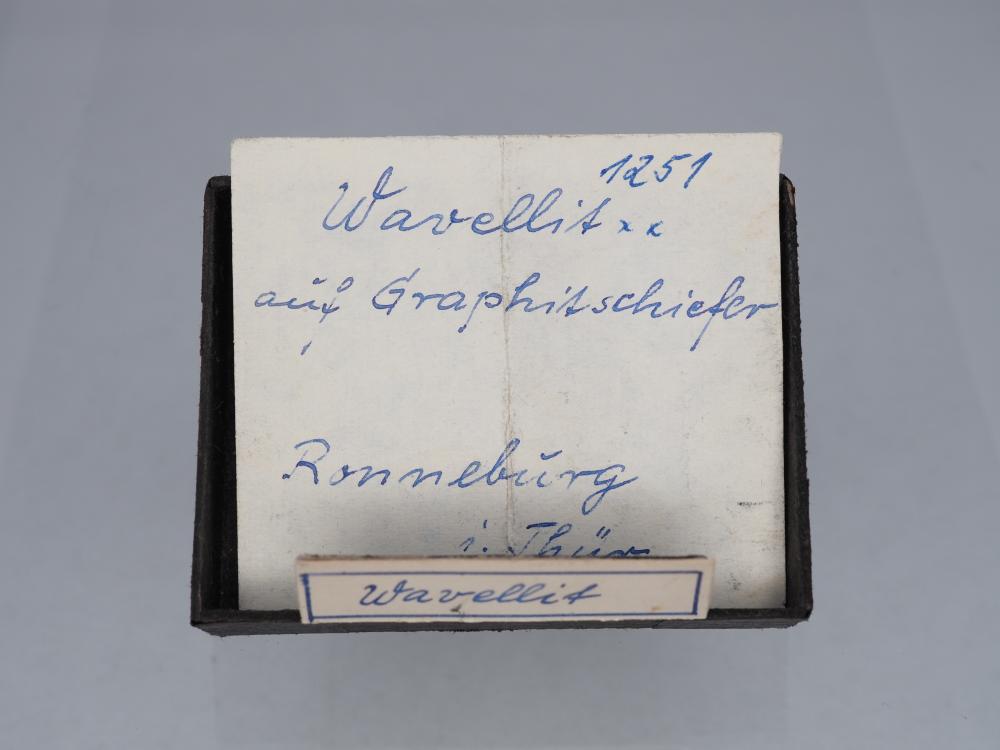 1251
Wavellit xx
auf Graphitschiefer
Ronneburg
i. Thür
Wavellit